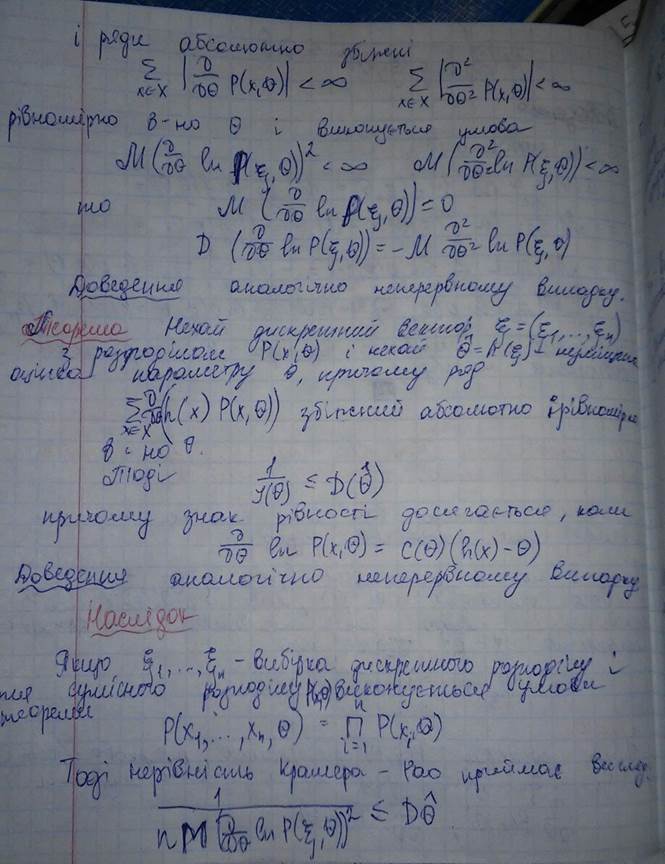 і ряди абсолютно збіжні
∑_{x∈X} |∂/∂θ P(x,θ)| < ∞   ∑_{x∈X} |∂²/∂θ² P(x,θ)| < ∞
рівномірно в-но θ і виконується умова
M(∂/∂θ ln P(ξ,θ))² < ∞   M(∂²/∂θ² ln P(ξ,θ)) < ∞
то   M(∂/∂θ ln P(ξ,θ)) = 0
D(∂/∂θ ln P(ξ,θ)) = -M ∂²/∂θ² ln P(ξ,θ)
Доведення аналогічно неперервному випадку.
Теорема Нехай дискретний вектор ξ = (ξ₁,...,ξₙ)
з розподілом P(x,θ) і нехай θ̂ = h(ξ) - незміщена
оцінка параметру θ, причому ряд
∑_{x∈X} ∂/∂θ (h(x) P(x,θ)) збіжний абсолютно і рівномірно
в-но θ.
Тоді
1/I(θ) ≤ D(θ̂)
причому знак рівності досягається, коли
∂/∂θ ln P(x,θ) = C(θ)(h(x) - θ)
Доведення аналогічно неперервному випадку
Наслідок
Якщо ξ₁,...,ξₙ - вибірка дискретного розподілу і
для сумісного розподілу P(x,θ) виконується умови
теореми
P(x₁,...,xₙ,θ) = ∏_{i=1}^{n} P(xᵢ,θ)
Тоді нерівність Крамера - Рао приймає вигляд
1/(n M(∂/∂θ ln P(ξ,θ))²) ≤ Dθ̂